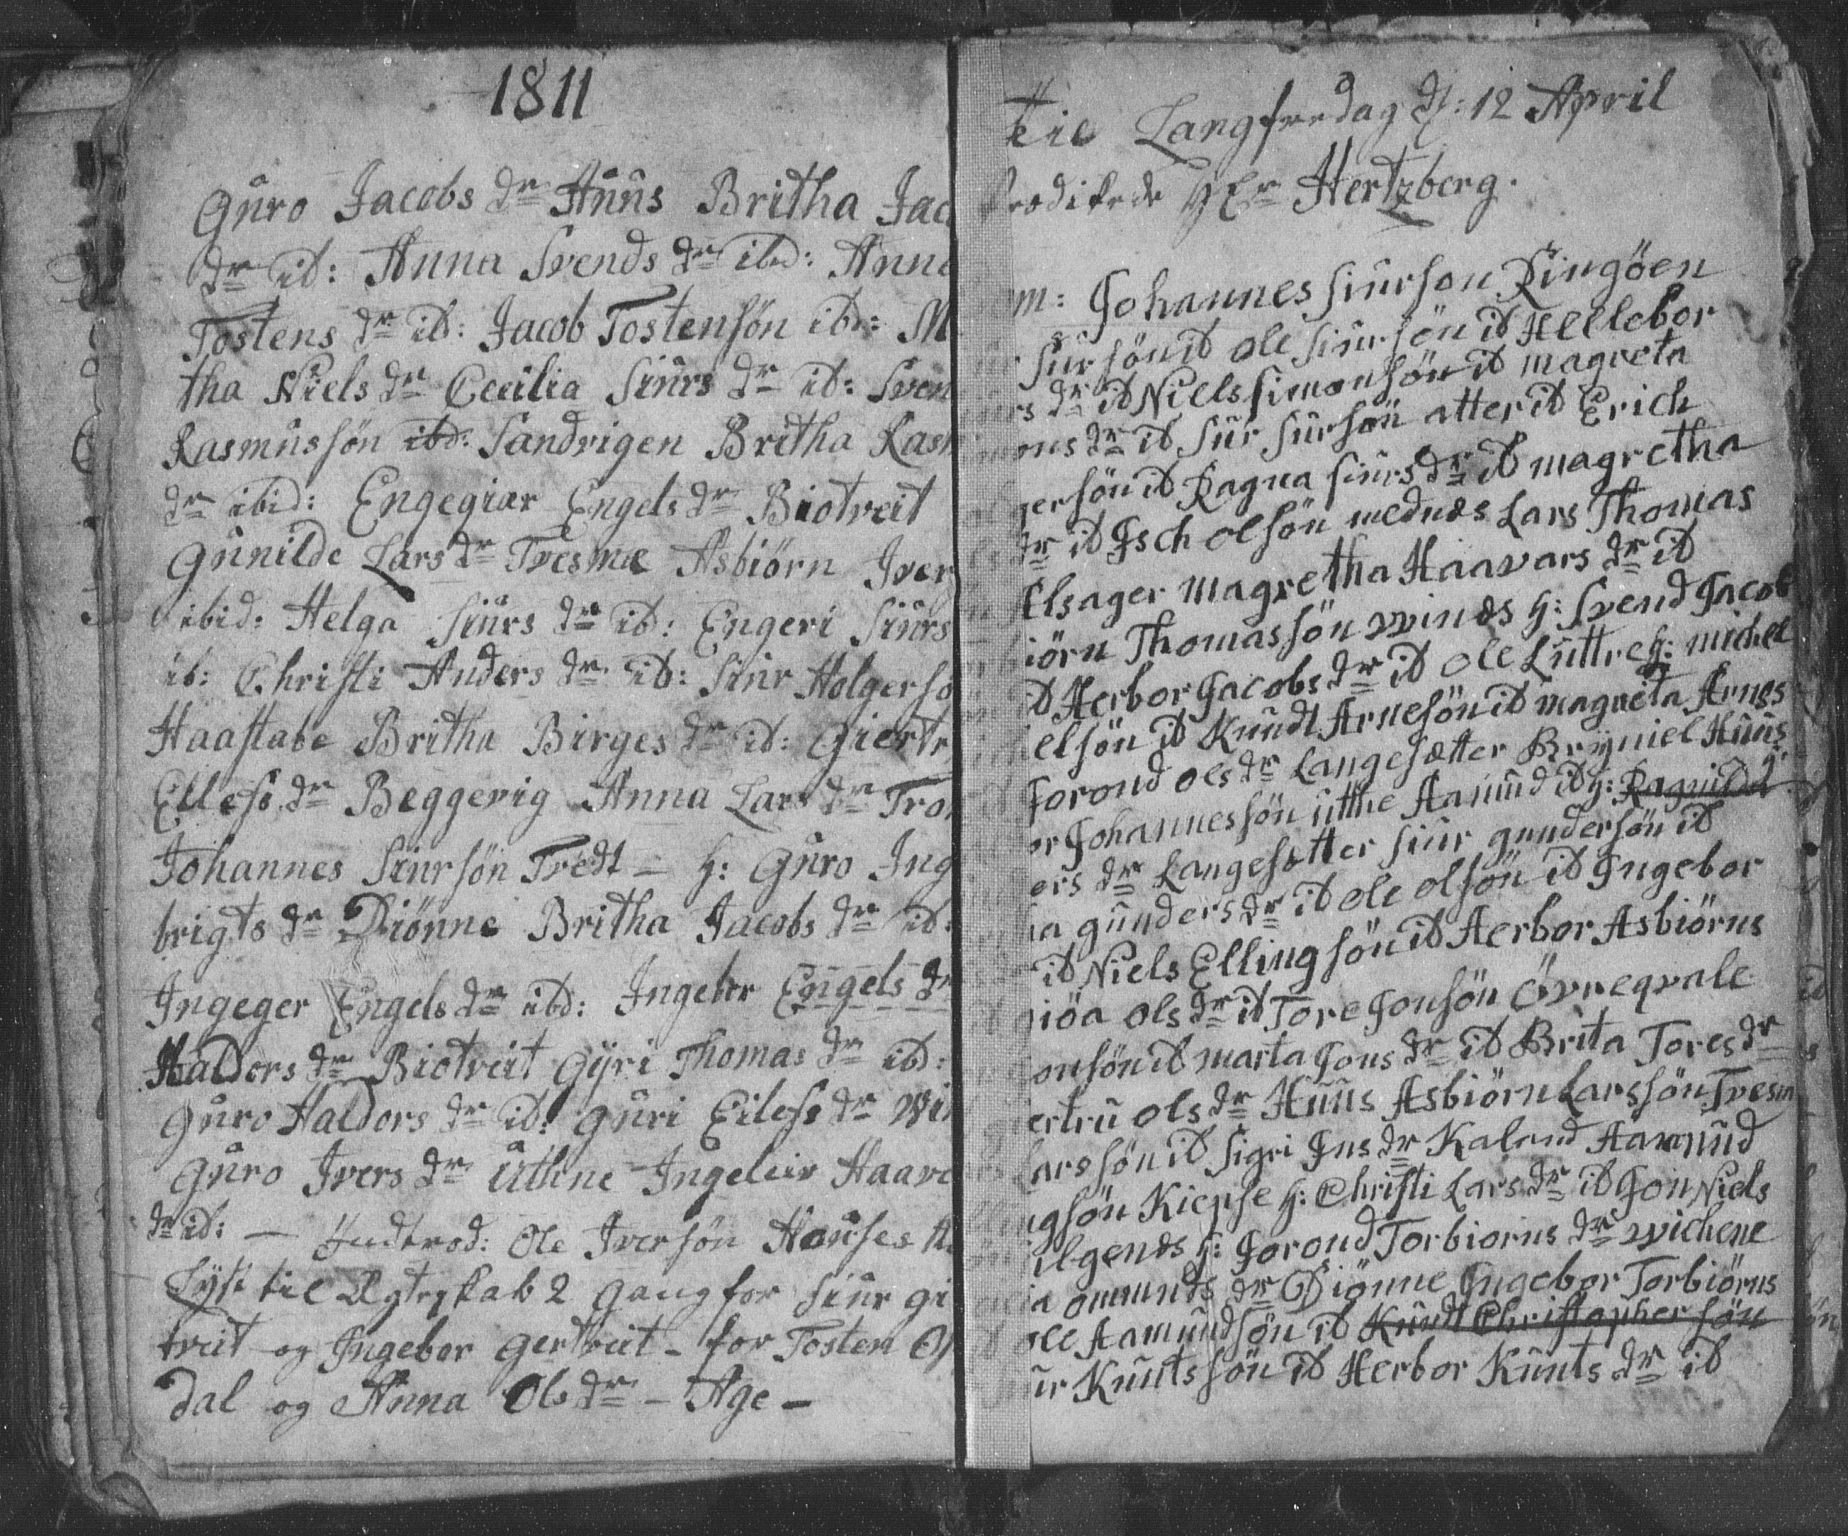 1811
Guro Jacobs dr Huus Britha Jac
dr id: Anna Svends dr ibd: Anna
Tostens dr id: Jacob Tostensön ibd: M
tha Niels dr Cecilia Siurs dr id: Sven
Rasmussön ibd: Sandvigen Britha Rasm
dr ibid: Engegiær Engels dr Biotveit
Gunilde Lars dr Tresmæ Asbiörn Iver
ibid: Helga Siurs dr id: Engeri Siurs
ib: Christi Anders dr id: Siur Holgersö
Haastabe Britha Birges dr id: Giertr
Ellefs dr Beggevig Anna Lars dr Tro
Johannes Siursön Tredt – h: Guro Ing
brigts dr Diönne Britha Jacobs dr id:
Ingeger Engels dr ibd: Ingebor Engels dr
Haldors dr Biotveit Gÿri Thomas dr ibd:
Guro Haldors dr id: Guri Eilefs dr Wi
Guro Ivers dr Uthne Ingeleiv Haav
dr id: – Indtrod: Ole Iversön Houses
Lÿst til Ægteskab 2 gang for Siur gi
treit og Ingebor gertveit – for Tosten
dal og Anna Ols dr – Age –
Langfredag d: 12 April
Prædikede Hr Hertzberg.
m: Johannes Siurson Ringöen
Sursön id ole Siursön id Hellebor
rs dr id Niels Simonsön id magreta
ons dr id Sur Sursön atter id Erich
gersön id Ragna Siurs dr id magretha
dr id Isch olsön mednæs Lars Thomas
Elsager magretha Haavars dr id
iörn Thomassön winæs h: Svend Jacob
id Herbor Jacobs dr id ole Luttre h: michel
elsön id Knudt Arnesön id magreta Arnes
Jorond ols dr Langesætter Brÿniel Huus
or Johannessön utthe Aamund id h: Ragnilda
ers dr Langesætter Siur gundersön id
ia gunders dr id ole olsön id Ingebor
id Niels Ellingsön id Herbor Asbiörns
iöa ols dr id Tore Jonsön Övreqvale
onsön id marta Jons dr id Brita Tores dr
ertru ols dr Huus Asbiörn Larssön Tresm
arssön id Sigri Jns dr Kaland Aamund
ngsön Kiepse h: Christi Lars dr id Jon Niels
ilgenæs h: Jorond Torbiorns dr wichene
ia ommunds dr Diönne Ingebor Torbiörns
ole Aamundsön id Knudt Christophersön
ur Knutssön id Herbor Knuts dr id